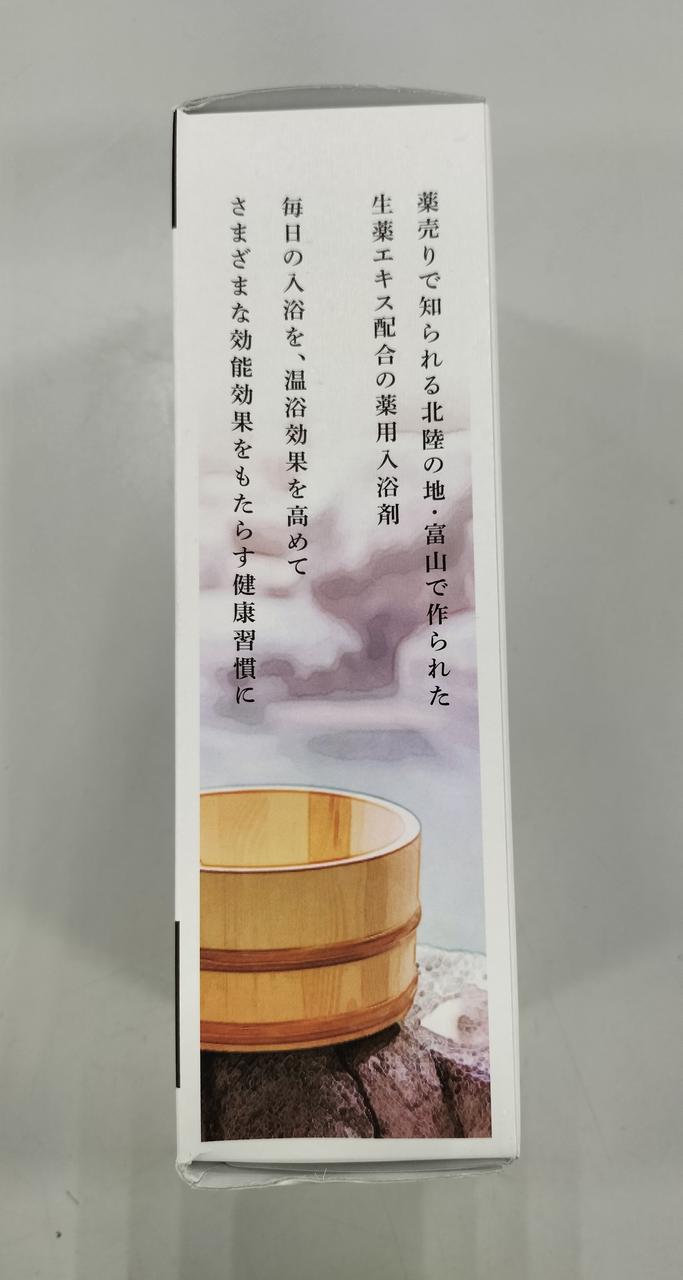 薬売りで知られる北陸の地・富山で作られた
生薬エキス配合の薬用入浴剤
毎日の入浴を、温浴効果を高めて
さまざまな効能効果をもたらす健康習慣に